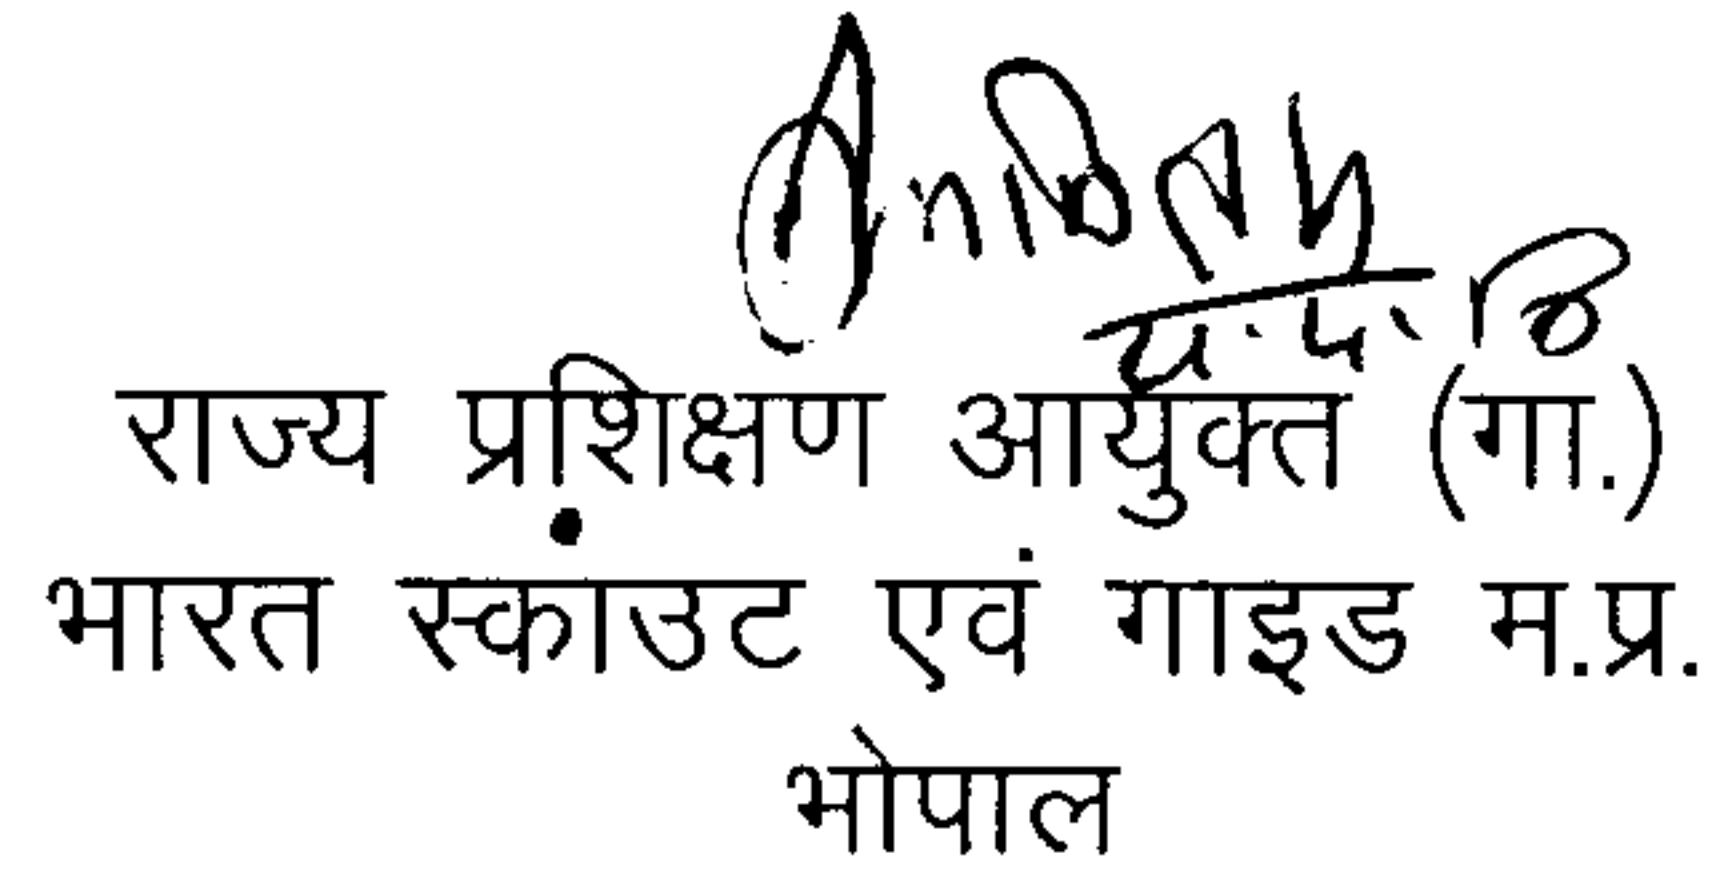 राज्य प्रशिक्षण आयुक्त (गा.)
भारत स्कांउट एवं गाइड म.प्र.
भोपाल